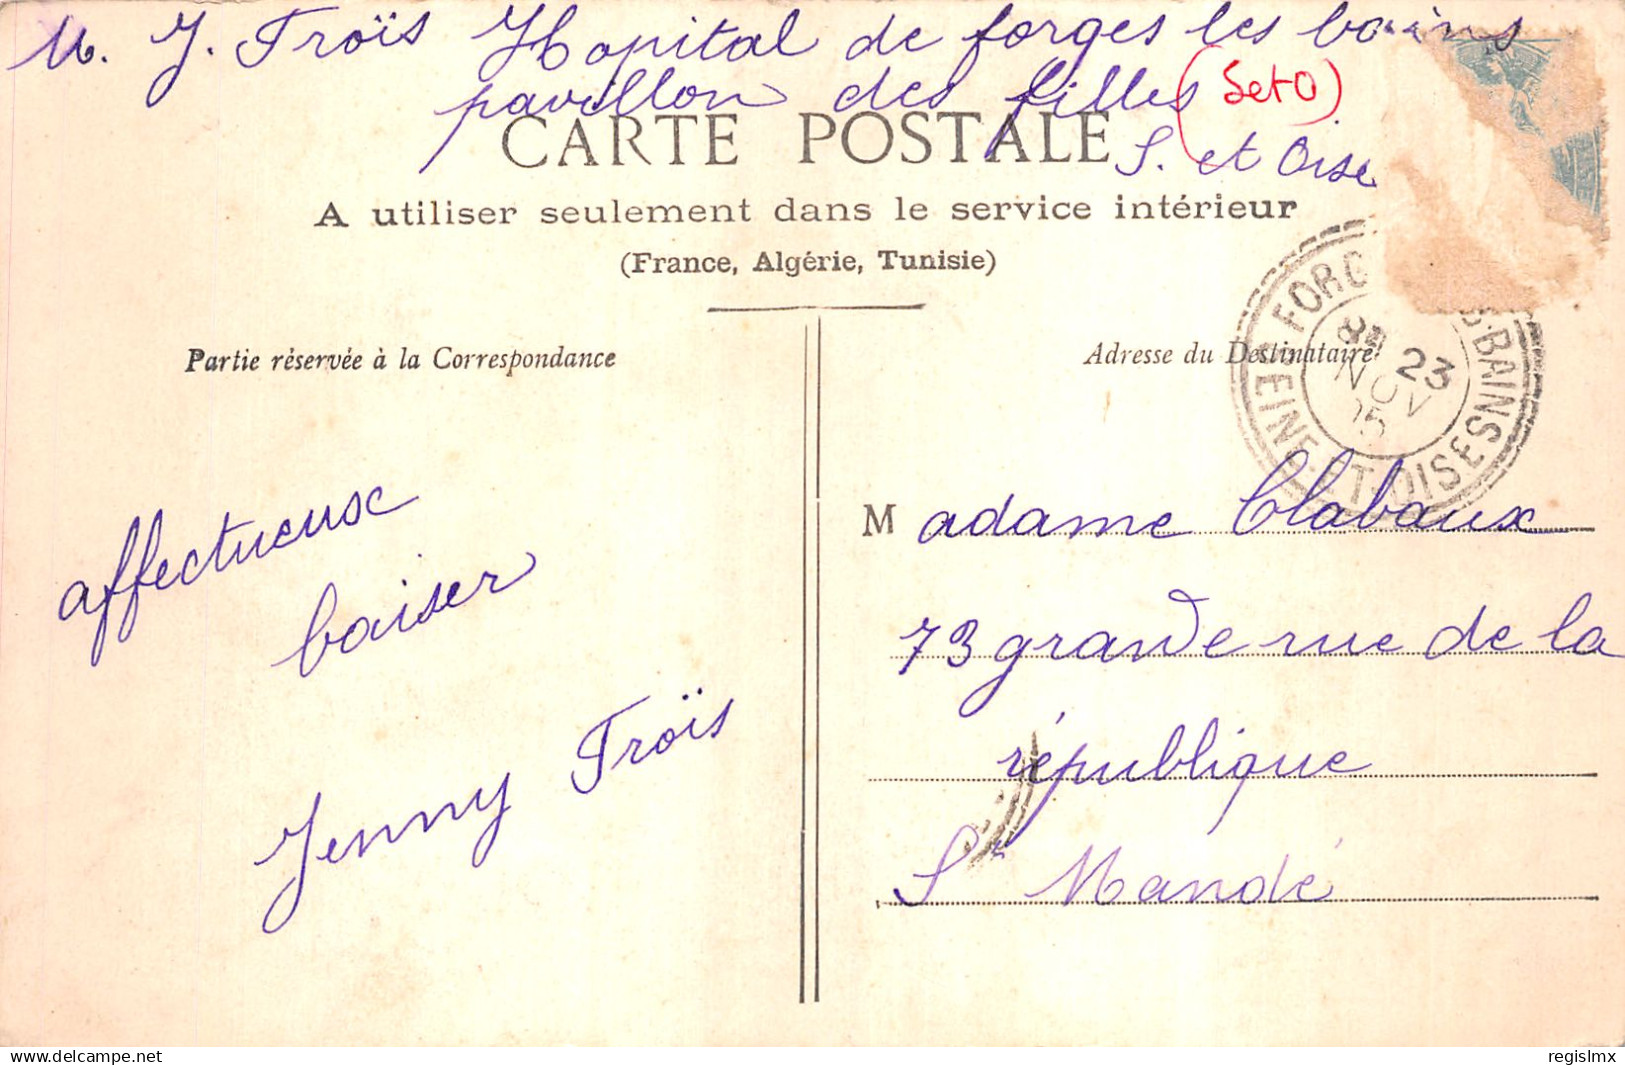 M. J. Troïs Hopital de forges les bains
pavillon des filles (S et O)
S. et Oise
CARTE POSTALE
A utiliser seulement dans le service intérieur
(France, Algérie, Tunisie)
Partie réservée à la Correspondance
Adresse du Destinataire
FORG S-BAINS
8 23
NOV
05
SEINE-ET-OISE
affectueuse
baiser
Jenny Troïs
Madame Clabaux
73 grande rue de la
république
St Mandé
delcampe.net
regislmx